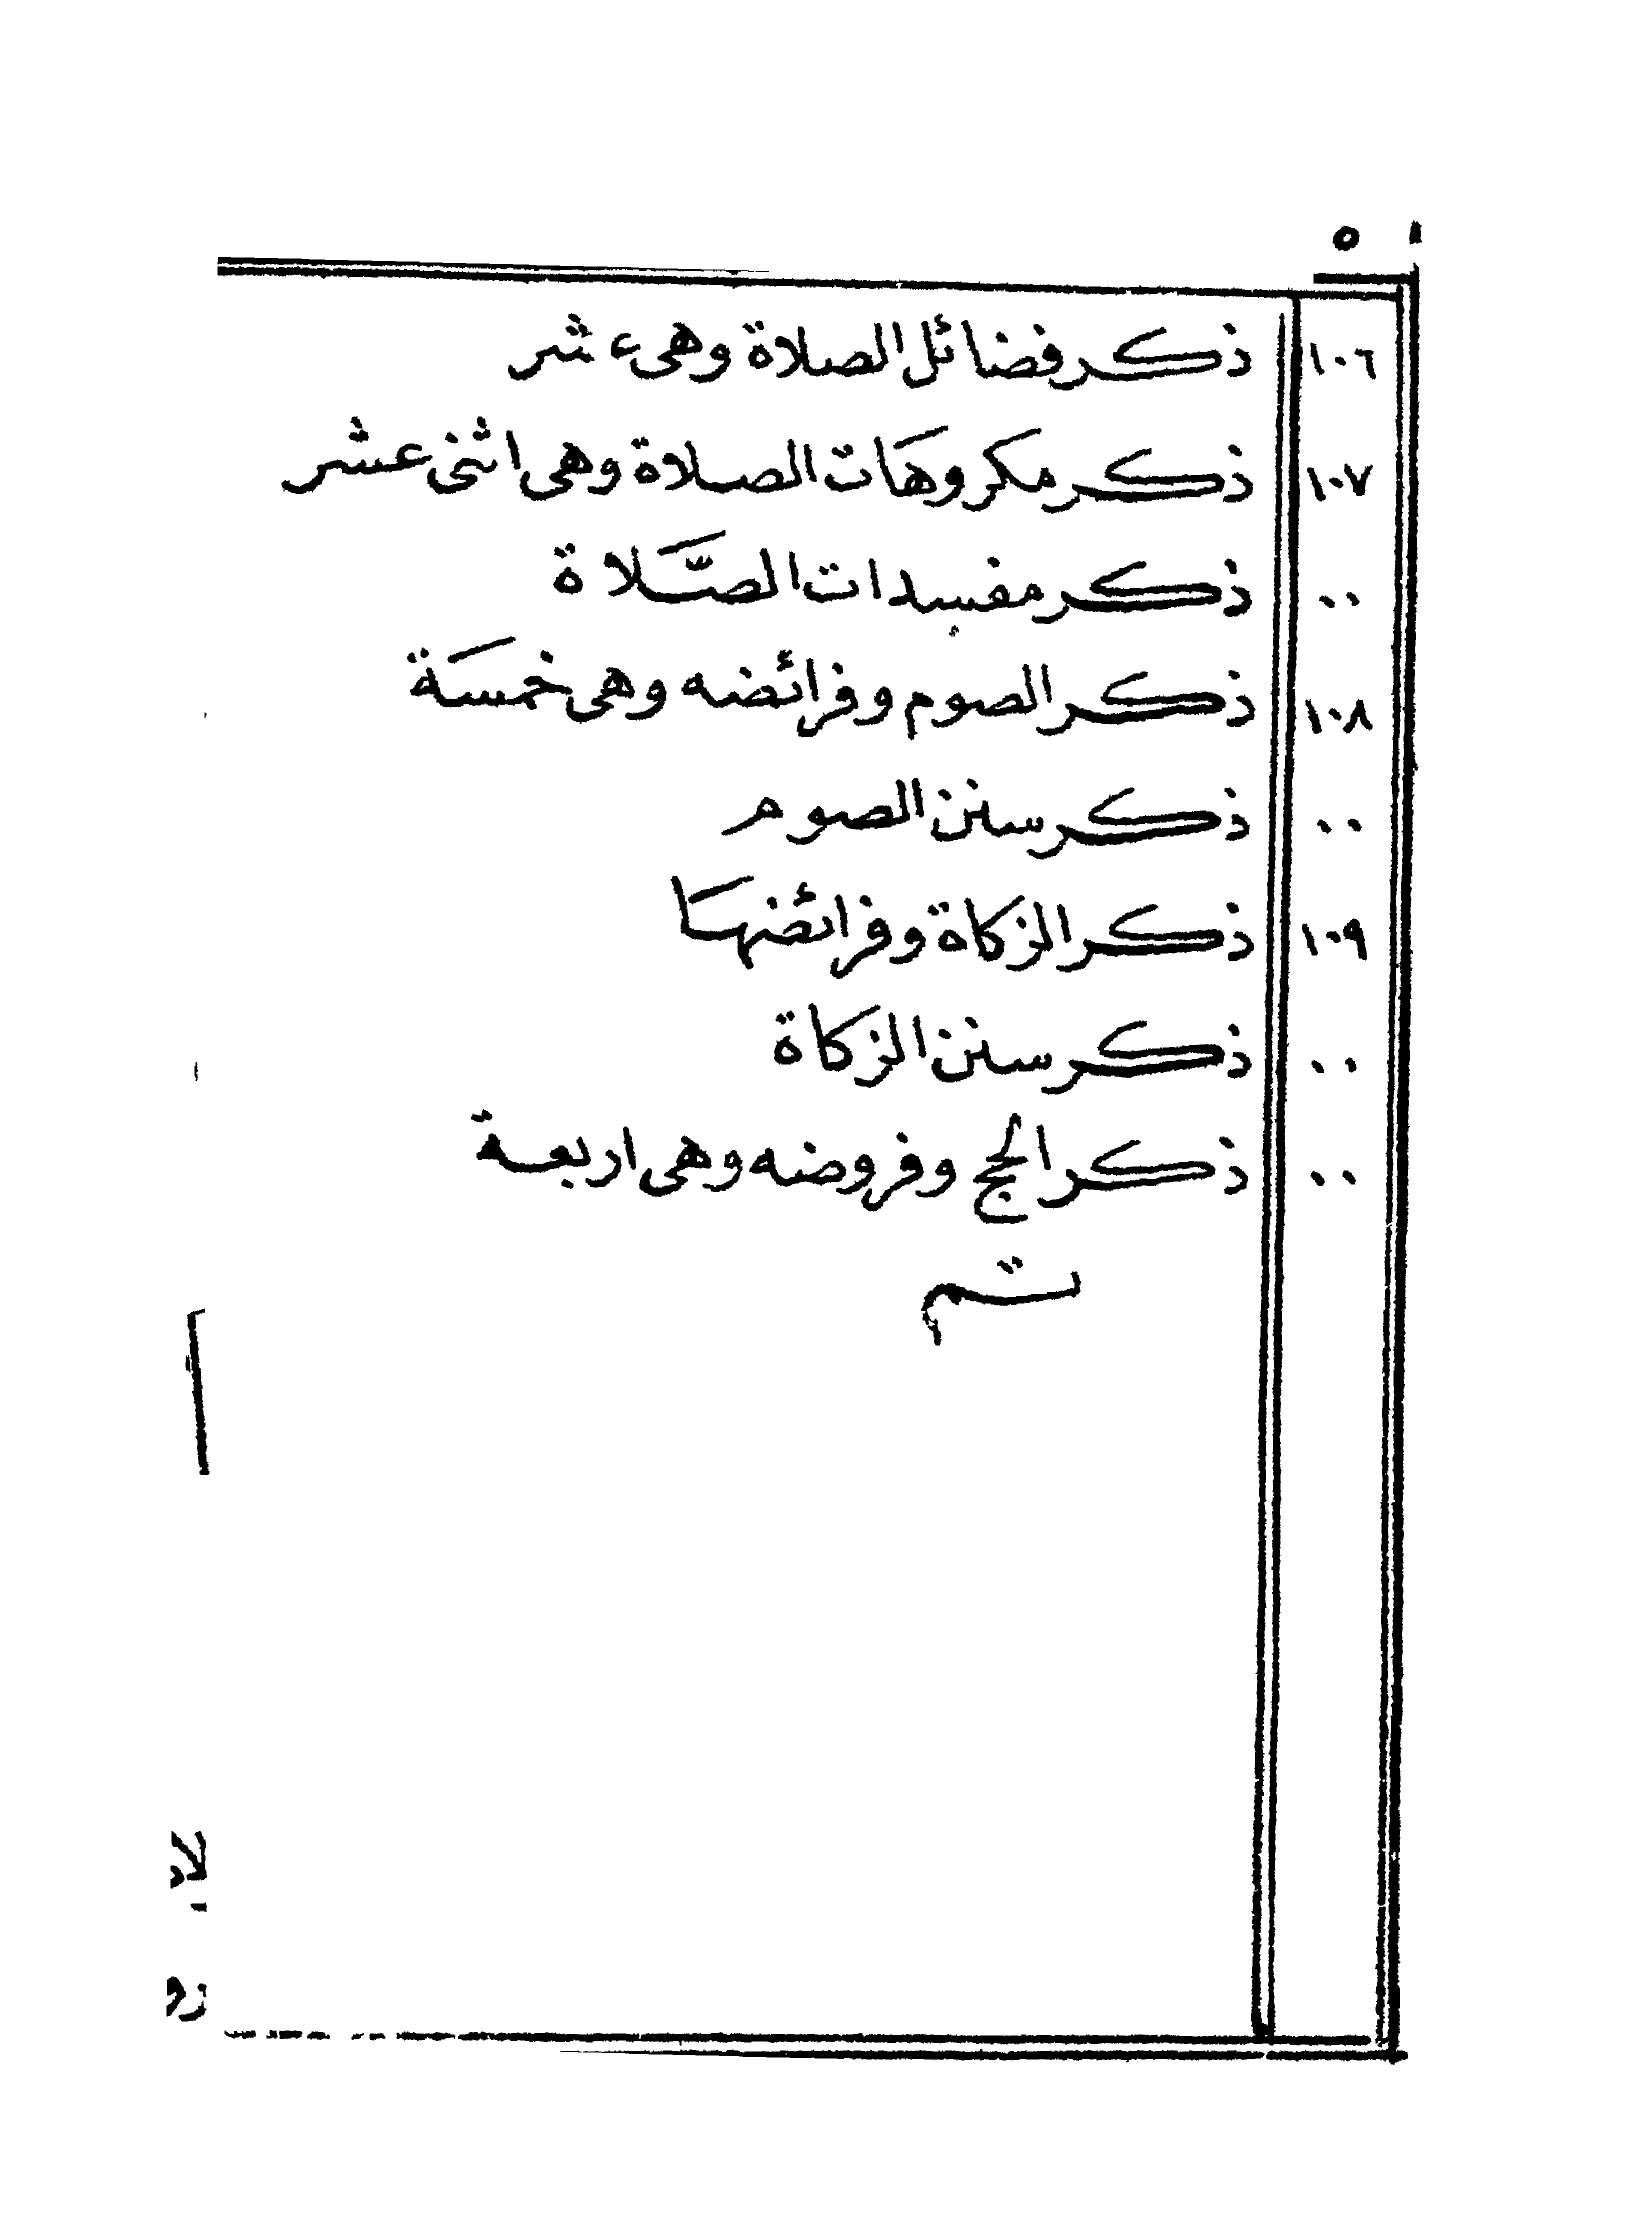 ٥
١٠٦ ذكر فضائل الصلاة وهى عشر
١٠٧ ذكر مكروهات الصلاة وهى اثنى عشر
٠٠ ذكر مفسدات الصّلاة
١٠٨ ذكر الصوم وفرائضه وهى خمسة
٠٠ ذكر سنن الصوم
١٠٩ ذكر الزكاة وفرائضها
٠٠ ذكر سنن الزكاة
٠٠ ذكر الحج وفروضه وهى اربعة
تم